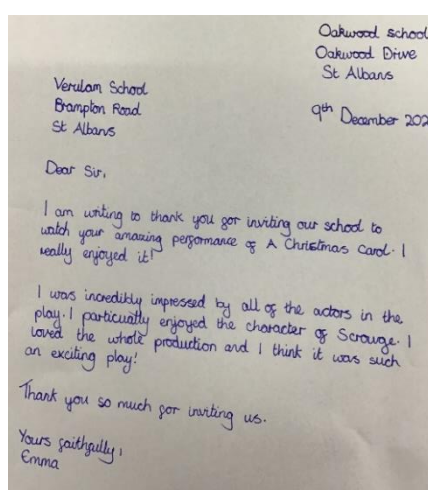 Oakwood school
Oakwood Drive
St Albans
9th December 202
Verulam School
Brampton Road
St Albans
Dear Sir,
I am writing to thank you for inviting our school to
watch your amazing performance of A Christmas Carol. I
really enjoyed it!
I was incredibly impressed by all of the actors in the
play. I particually enjoyed the character of Scrouge. I
loved the whole production and I think it was such
an exciting play!
Thank you so much for inviting us.
Yours faithfully,
Emma